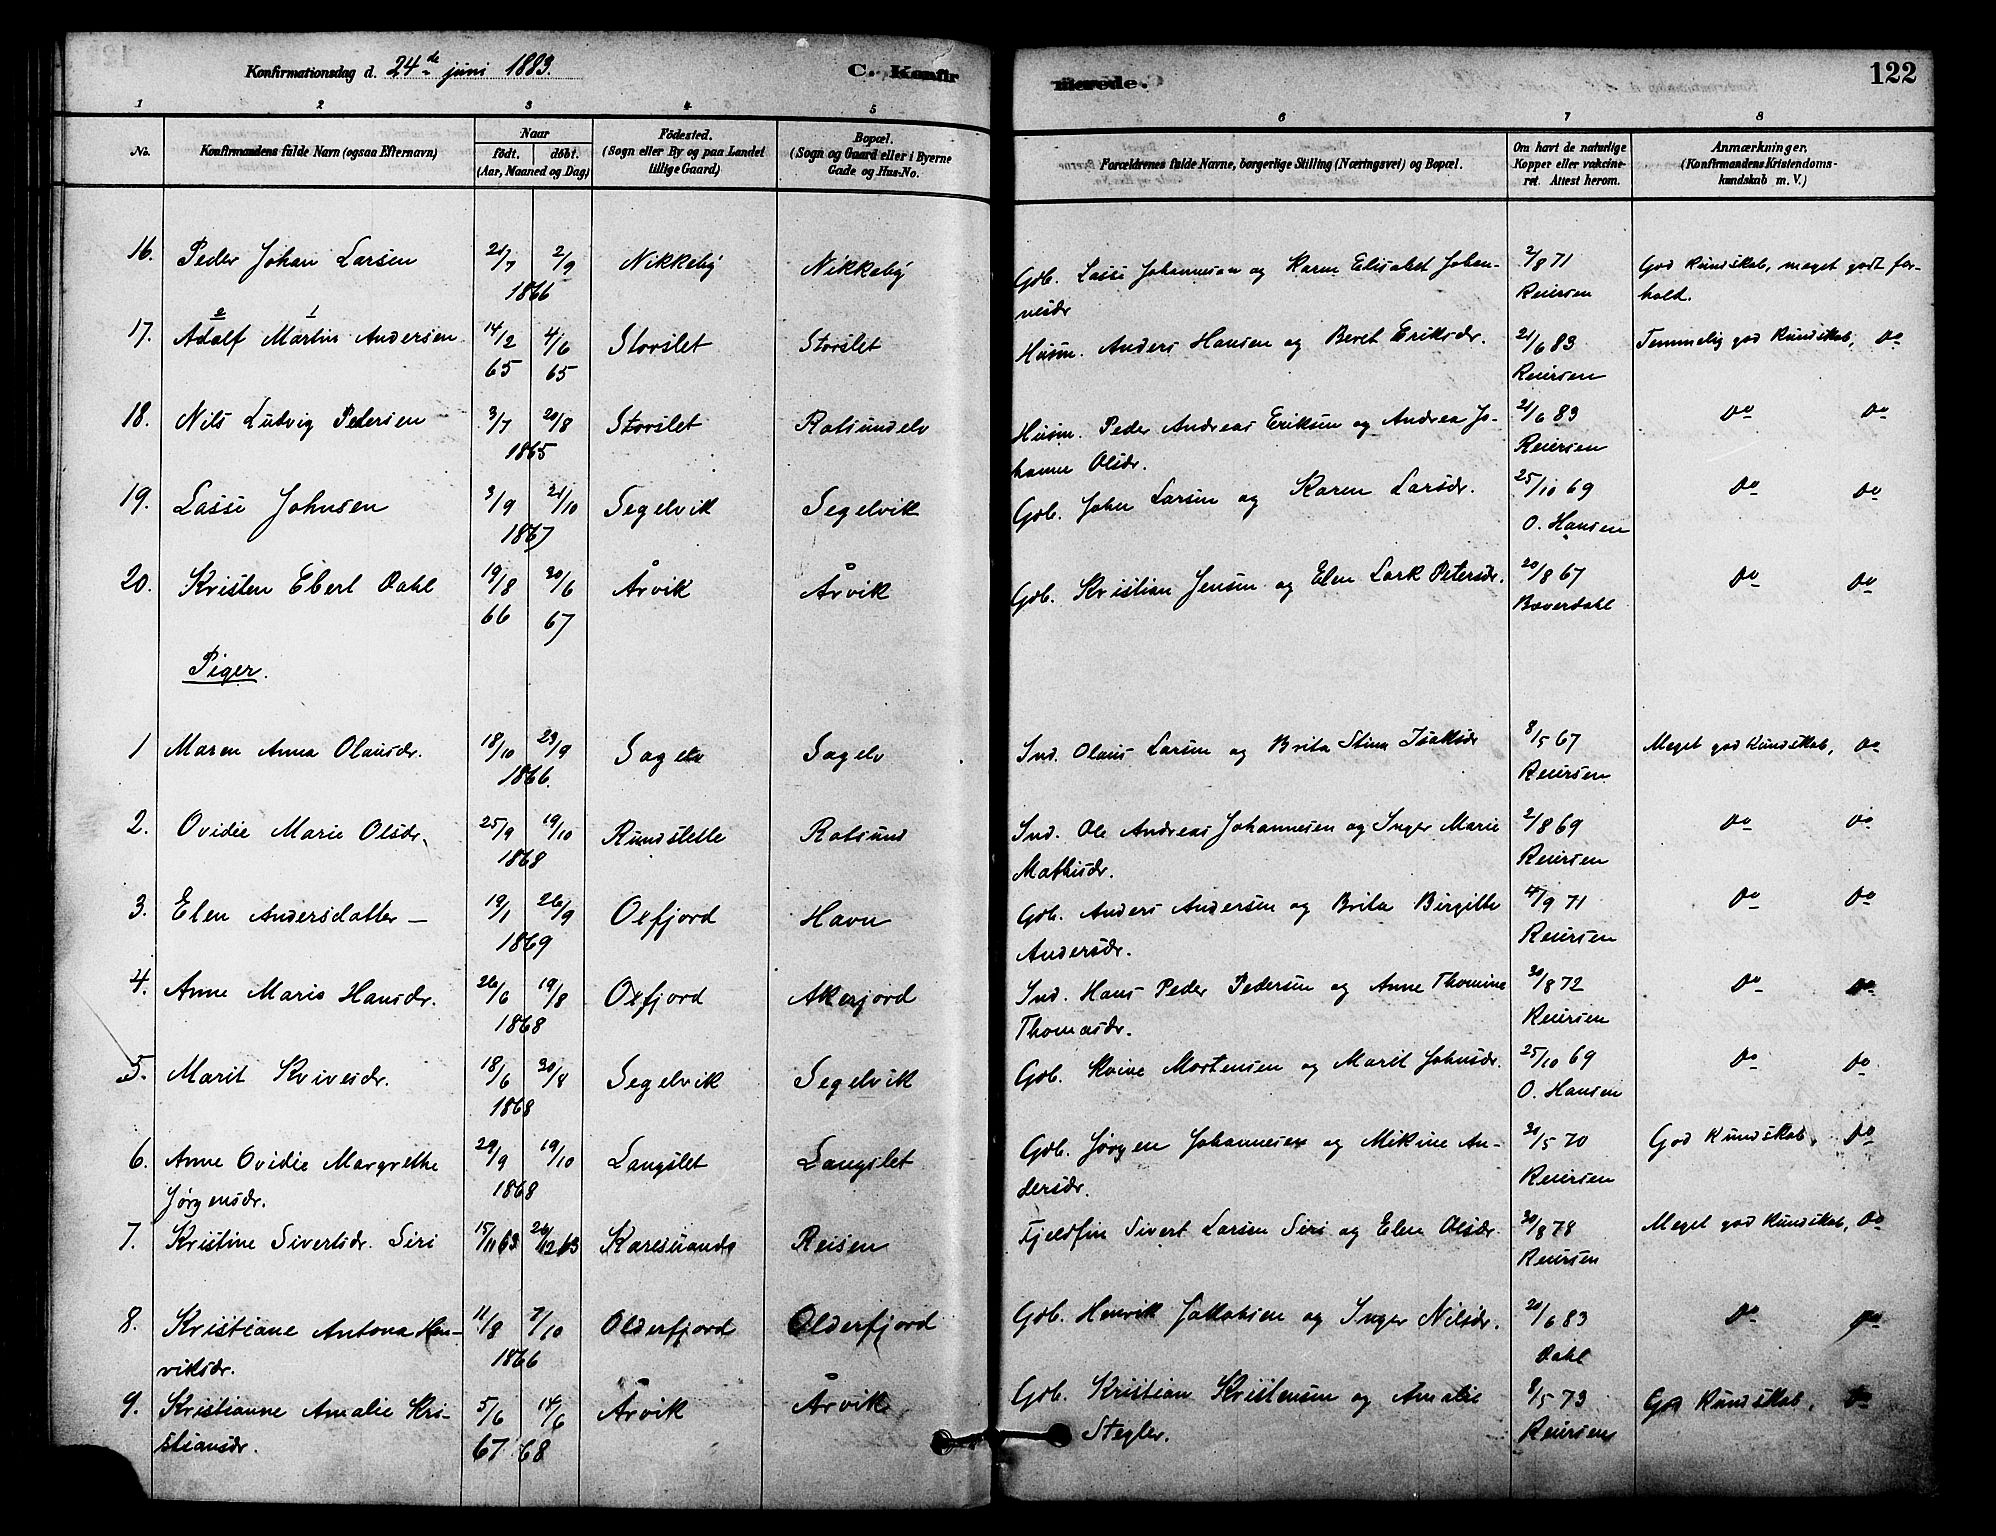 Konfirmationsdag d. 24de juni 1883.
C. Konfirmerede.
122
1 2 3 4 5 6 7 8
No.
Konfirmandens fulde Navn (ogsaa Efternavn)
Naar
født. døbt.
(Aar, Maaned og Dag)
Fødested.
(Sogn eller By og paa Landet
tillige Gaard)
Bopæl.
(Sogn og Gaard eller i Byerne
Gade og Hus-No.
Forældrenes fulde Navne, borgerlige Stilling (Næringsvei) og Bopæl.
Om havt de naturlige
Kopper eller vakcine-
ret. Attest herom.
Anmærkninger.
(Konfirmandens Kristendoms-
kundskab m. V.)
16. Peder Johan Larsen 21/7 2/9 Nikkeby Nikkeby Gdb. Lasse Johannesen og Karen Elisabet Johan- 2/8 71 God Kundskab, meget godt for-
1866 nesdr Reiersen hold.
2 1
17. Adolf Martin Andersen 14/2 4/6 Storslet Storslet Husm. Anders Hansen og Beret Eriksdr. 21/6 83 Temmelig god Kundskab, Do
65 65 Reiersen
18. Nils Ludvig Pedersen 3/7 20/8 Storslet Rotsundelv Husm. Peder Andreas Eriksen og Andrea Jo- 21/6 83 Do Do
1865 hanne Olsdr. Reiersen
19. Lasse Johnsen 3/9 21/10 Segelvik Segelvik Gdb. John Larsen og Karen Larsdr. 25/10 69 Do Do
1867 O. Hansen
20. Kristen Ebert Dahl 19/8 30/6 Årvik Årvik Gdb. Kristian Jensen og Elen Lark Petersdr. 20/8 67 Do Do
66 67 Bæverdahl
Piger.
1 Maren Anna Olausdr. 18/10 23/9 Sagelv Sagelv Ind. Olaus Larsen og Brita Stina Isaksdr 8/5 67 Meget god Kundskab, Do
1866. Reiersen
2. Ovidie Marie Olsdr. 25/9 19/10 Rundslette Rotsund Ind. Ole Andreas Johannesen og Inger Marie 2/8 69 Do Do
1868 Mathisdr. Reiersen
3. Elen Andersdatter — 19/1 26/9 Oxfjord Havn Gdb. Anders Andersen og Brita Birgitte 4/9 71 Do Do
1869 Andersdr. Reiersen
4. Anne Maris Hansdr. 26/6 19/8 Oxfjord Akerjord Ind. Hans Peder Pedersen og Anne Thomine 30/8 72 Do Do
1868 Thomasdr. Reiersen
5. Marit Kvivesdr. 18/6 30/8 Segelvik Segelvik Gdb. Kvive Mortensen og Marit Johnsdr. 25/10 69 Do Do
1868 O. Hansen
6. Anne Ovidie Margrethe 29/9 19/10 Langslet Langslet Gdb. Jørgen Johannesen og Mikine An- 30/5 70 God Kundskab, Do
Jørgensdr. 1868 dersdr. Reiersen
7. Kristine Sivertsdr. Siri 15/11 63 26/12 63 Karesuando Reisen Fjeldfin Sivert Larsen Siri og Elen Olsdr. 30/8 78 Meget god Kundskab, Do
Reiersen
8. Kristiane Antona Hen- 11/8 7/10 Olderfjord Olderfjord Gdb. Henrik Jakobsen og Inger Nilsdr. 20/6 83 Do Do
riksdr. 1866 Dahl
9. Kristianne Amalie Kri- 5/6 14/6 Årvik Årvik Gdb. Kristian Kristensen og Amalie 9/5 73 God Kundskab, Do
stiansdr. 67 68 Stegler. Reiersen